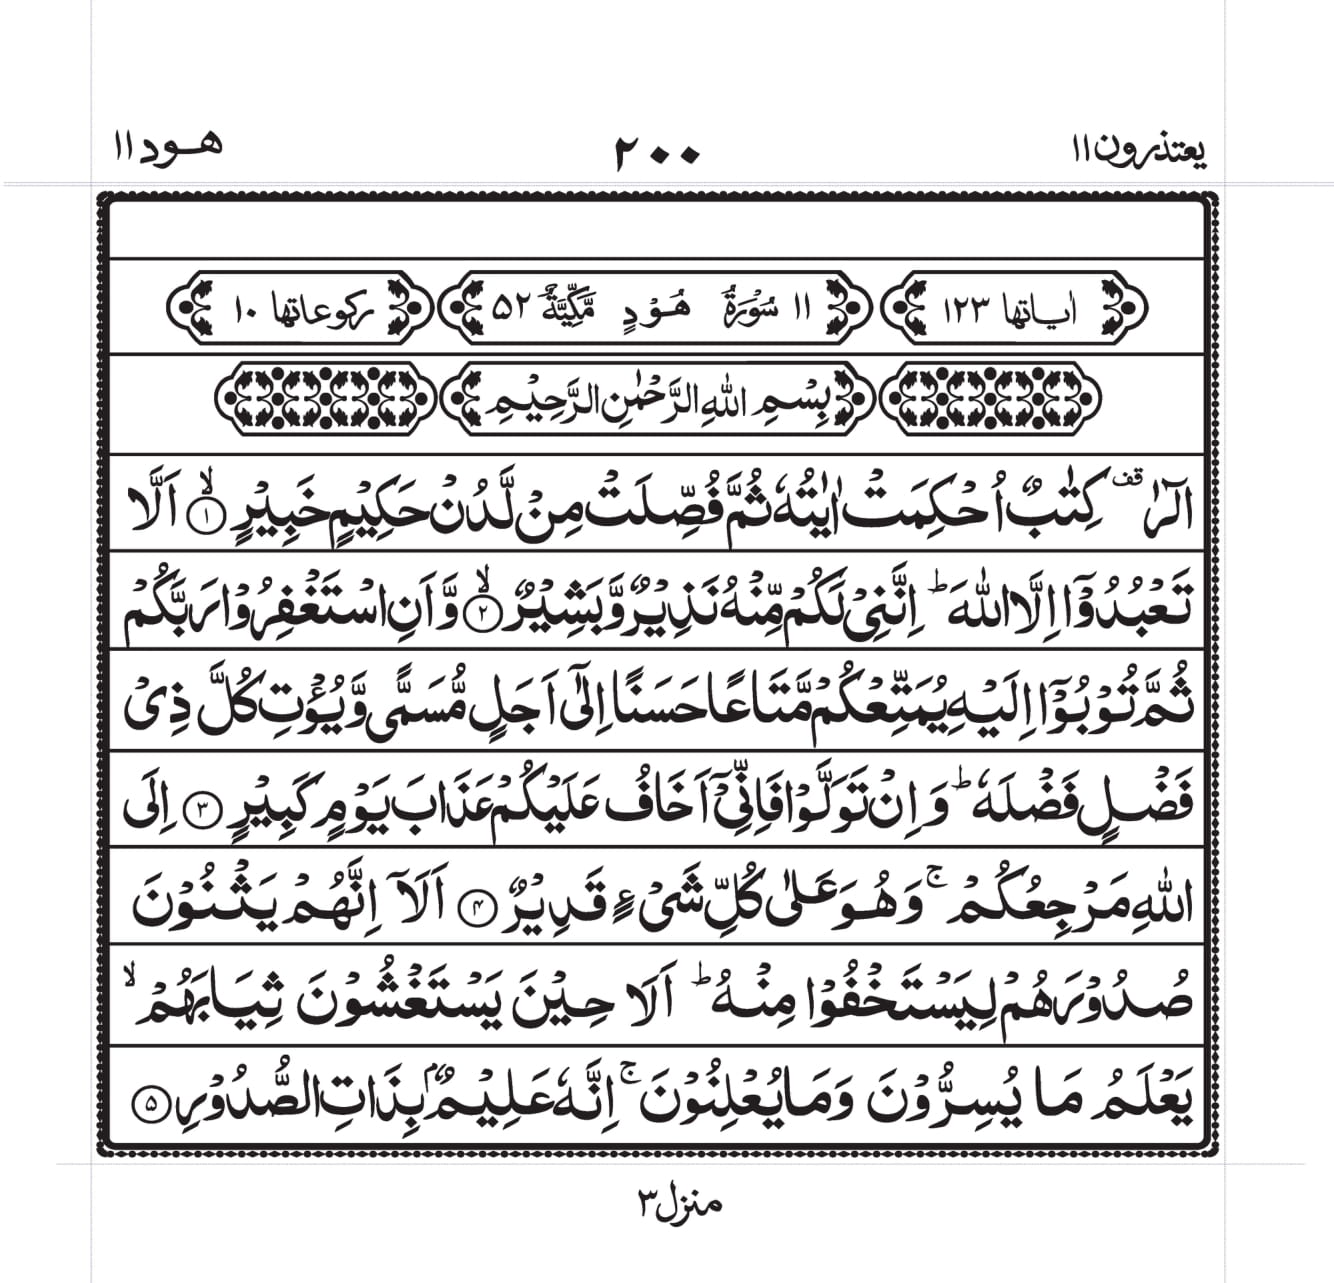 یعتذرون۱۱ ۲۰۰ هود۱۱
اٰیاتها ۱۲۳ ۱۱ سُوْرَةُ هُوْدٍ مَّکِّیَّةٌ ۵۲ رکوعاتها ۱۰
بِسْمِ اللهِ الرَّحْمٰنِ الرَّحِیْمِ
الٓرٰ قف کِتٰبٌ اُحْکِمَتْ اٰیٰتُهٗ ثُمَّ فُصِّلَتْ مِنْ لَّدُنْ حَکِیْمٍ خَبِیْرٍ ۙ‏﴿۱﴾ اَلَّا
تَعْبُدُوْۤا اِلَّا اللهَ ؕ اِنَّنِیْ لَکُمْ مِّنْهُ نَذِیْرٌ وَّبَشِیْرٌ ۙ‏﴿۲﴾ وَّ اَنِ اسْتَغْفِرُوْا رَبَّکُمْ
ثُمَّ تُوْبُوْۤا اِلَیْهِ یُمَتِّعْکُمْ مَّتَاعًا حَسَنًا اِلٰۤی اَجَلٍ مُّسَمًّی وَّیُؤْتِ کُلَّ ذِیْ
فَضْلٍ فَضْلَهٗ ؕ وَ اِنْ تَوَلَّوْا فَاِنِّیْۤ اَخَافُ عَلَیْکُمْ عَذَابَ یَوْمٍ کَبِیْرٍ ﴿۳﴾ اِلَی
اللهِ مَرْجِعُکُمْ ۚ وَهُوَ عَلٰی کُلِّ شَیْءٍ قَدِیْرٌ ﴿۴﴾ اَلَاۤ اِنَّهُمْ یَثْنُوْنَ
صُدُوْرَهُمْ لِیَسْتَخْفُوْا مِنْهُ ؕ اَلَا حِیْنَ یَسْتَغْشُوْنَ ثِیَابَهُمْ ۙ
یَعْلَمُ مَا یُسِرُّوْنَ وَمَا یُعْلِنُوْنَ ۚ اِنَّهٗ عَلِیْمٌۢ بِذَاتِ الصُّدُوْرِ ﴿۵﴾
منزل۳